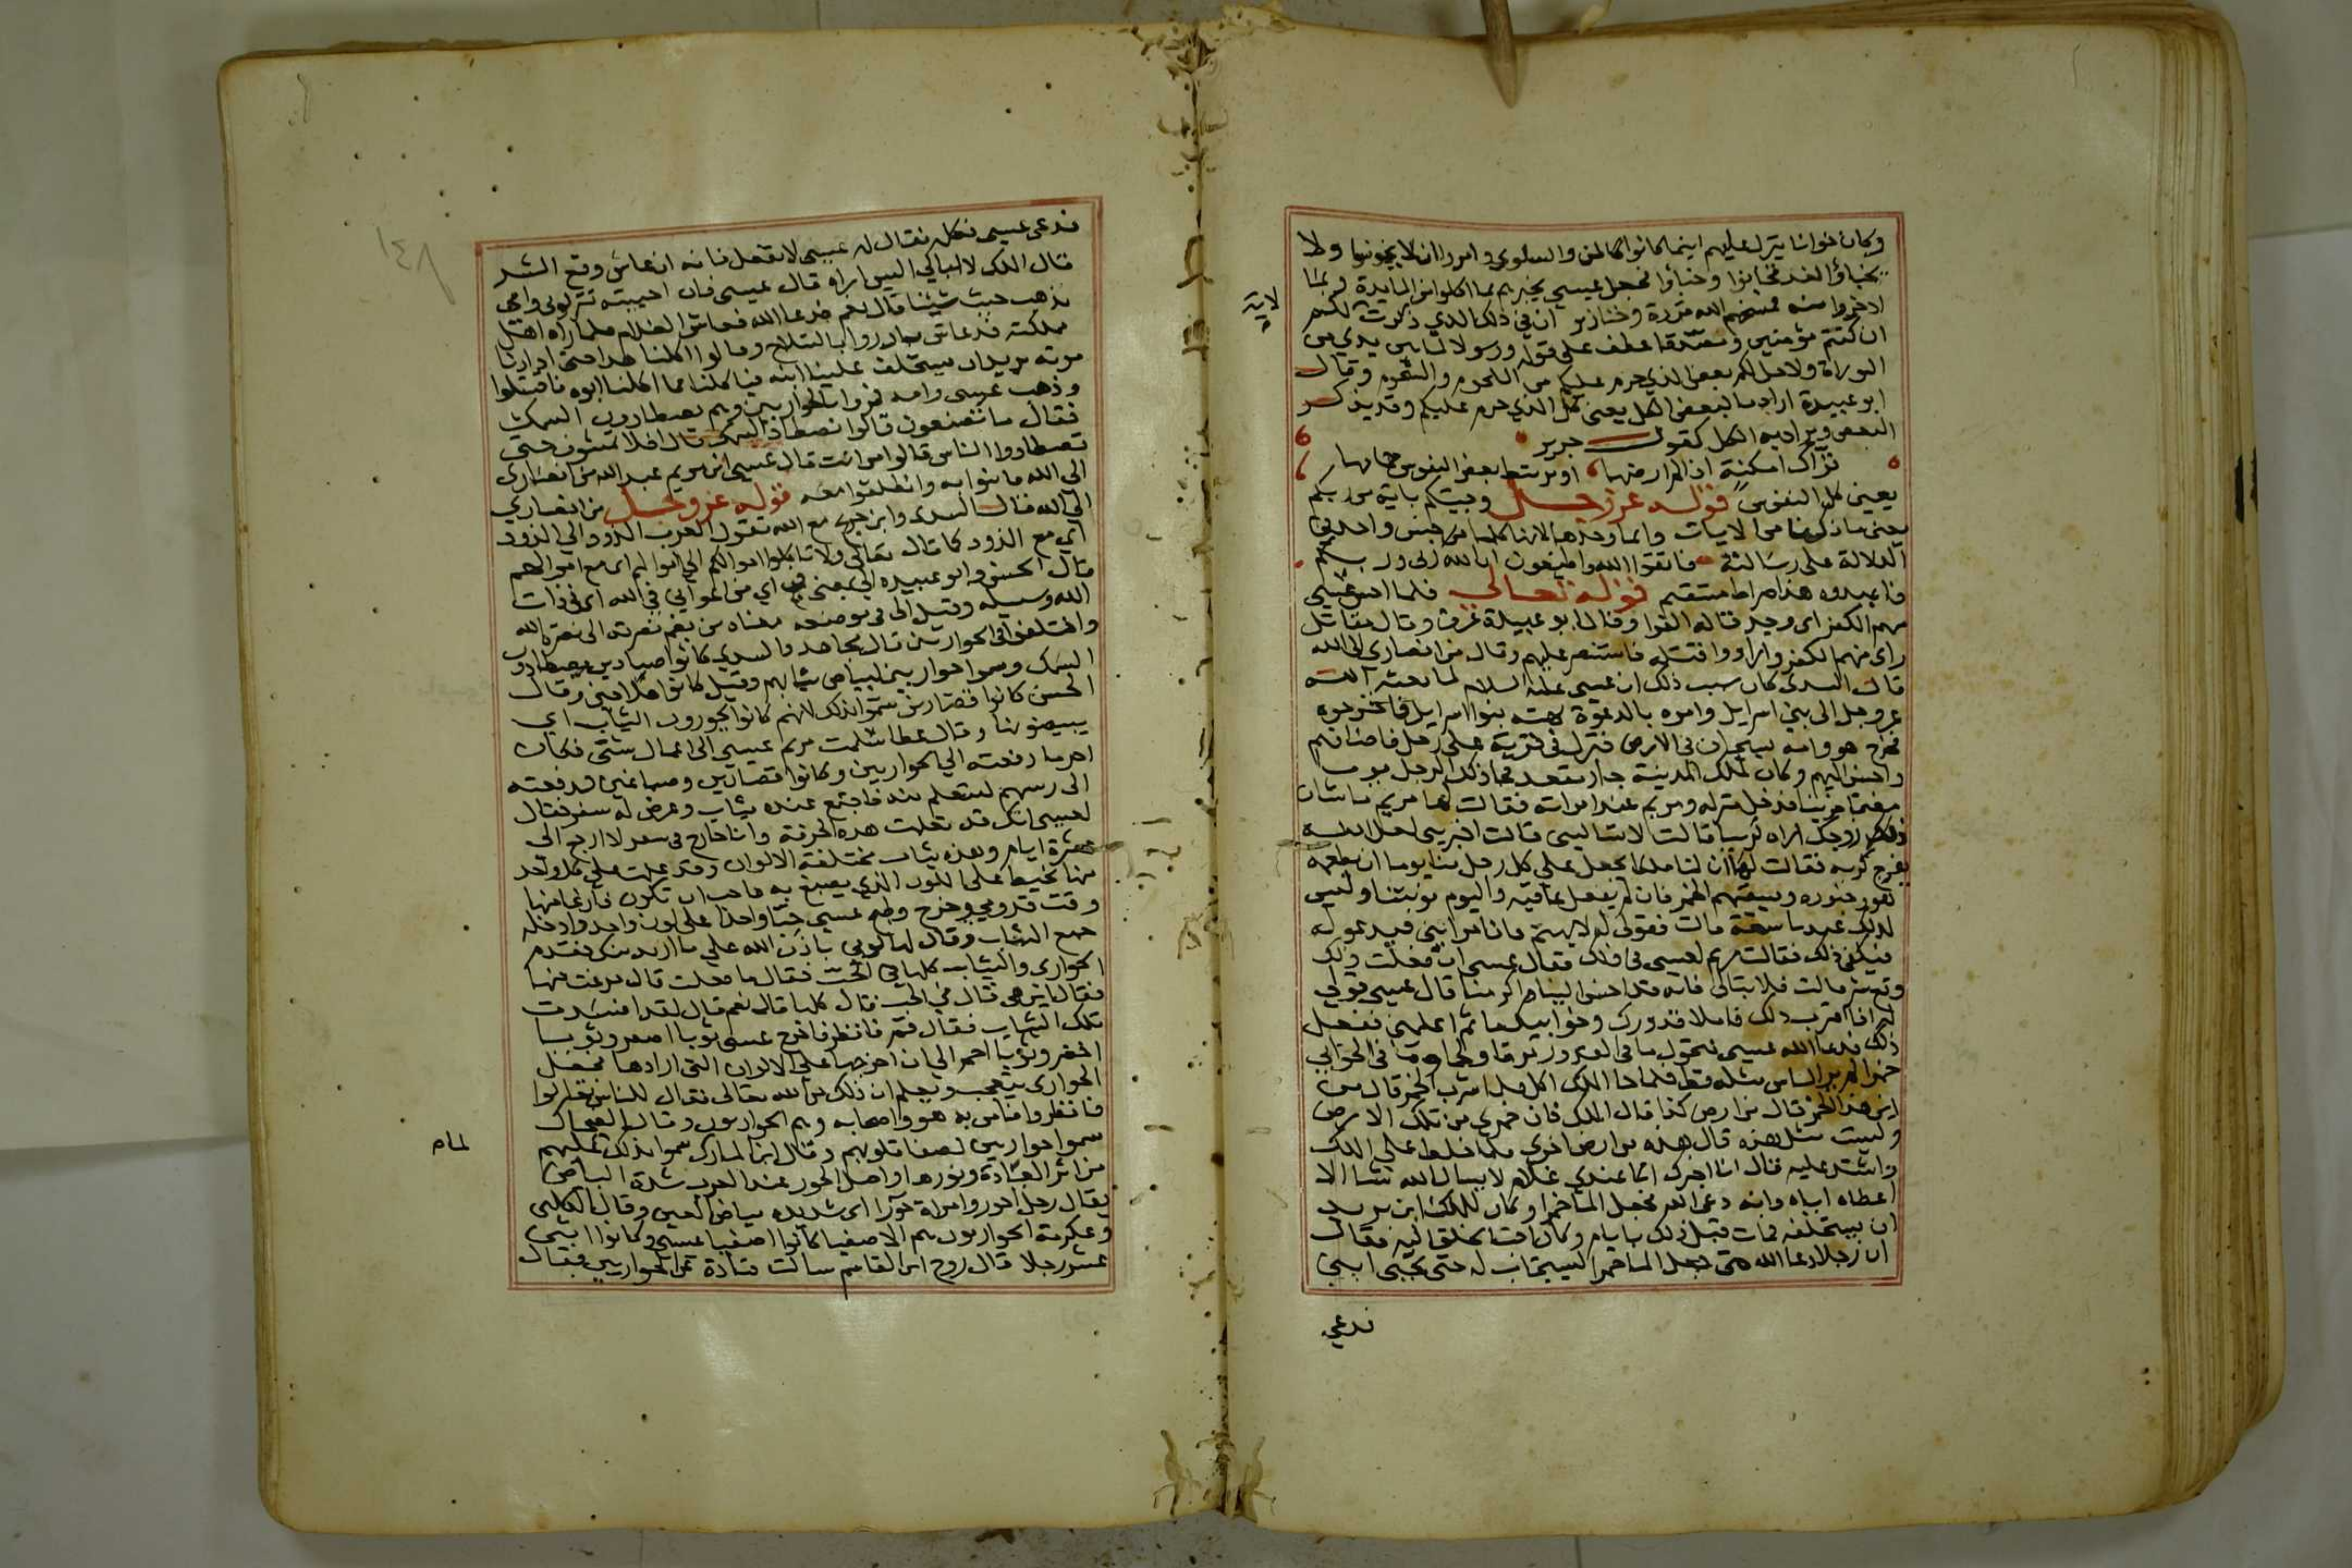 وكان خوانا ينزل عليهم اينما كانوا كالمن والسلوي وامروا ان لا يخونوا ولا
يخباؤا لغد فخانوا وخباوا فجعل عيسي يخبرهم بما اكلوا من المايدة وبما
ادخروا منه فمسخهم الله قردة وخنازير ان في ذلك الذي ذكرت لكم
لاية
ان كنتم مؤمنين ومصدقا عطف علي قوله ورسولا لما بين يدي من
التوراة ولاحل لكم بعض الذي حرم عليكم من اللحوم والشحوم وقال
ابو عبيدة اراد بالبعض الكل يعني كل الذي حرم عليكم وقد يذكر
البعض ويراد به الكل كقول جرير
تراك امكنة اذا لم ارضها او يرتبط بعض النفوس حمامها
يعني كل النفوس قوله عز وجل وجيتكم باية من ربكم
يعني ما ذكرنا من الايات وانما وحدها لانها كلها من جنس واحد في
الدلالة علي رسالته فاتقوا الله واطيعون ان الله ربي وربكم
فاعبدوه هذا صراط مستقيم قوله تعالي فلما احس عيسي
منهم الكفر اي وجد قاله الفرا وقال ابو عبيدة عرف وقال مقاتل
راي منهم الكفر وارادوا قتله فاستنصر عليهم وقال من انصاري الي الله
قال السدي كان سبب ذلك ان عيسي عليه السلام لما بعثه الله
عز وجل الي بني اسرايل وامره بالدعوة نفته بنوا اسرايل فاخرجوه
فخرج هو وامه يسيحان في الارض فنزل في قرية علي رجل فاضافهم
واحسن اليهم وكان لملك المدينة جبار متعد فجا ذلك الرجل يوما
مغتما حزينا فدخل منزله ومريم عند امراته فقالت لها مريم ما شان
زوجك اراه كئيبا قالت لا تساليني قالت اخبريني لعل الله
يفرج كربه فقالت ان لنا ملكا يجعل علي كل رجل منا يوما ان يطعمه
هو وجنوده ويسقيهم الخمر فان لم يفعل عاقبه واليوم نوبتنا وليس
لذلك عندنا سعة قالت فقولي له لا يهتم فانا امر ابني فيدعو له
فيكفي ذلك فقالت مريم لعيسي في ذلك فقال عيسي ان فعلت ذلك
وقع شر قالت فلا تبالي فانه قد احسن الينا واكرمنا قال عيسي قولي
له اذا اقترب ذلك فاملا قدورك وخوابيك ماثم اعلمني ففعل
ذلك فدعا الله عيسي فتحول ما في القدور مرقا ولحما وما في الخوابي
خمرا لم ير الناس مثله قط فلما جا الملك اكل فلما شرب الخمر قال من
اين هذا الخمر قال من ارض كذا قال الملك فان خمري من تلك الارض
وليست مثل هذه قال هذه من ارض اخري فلما خلط علي الملك
واشتد عليه قال انا اخبرك انما عندي غلام لا يسال الله شيا الا
اعطاه اياه وانه دعي الله فجعل الما خمرا وكان للملك ابن يريد
ان يستخلفه فمات قبل ذلك بايام وكان احب الخلق اليه فقال
ان رجلا دعا الله حتي جعل الما خمرا ليستجاب له حتي يحيي ابني
فدعي
١٤٨
فدعي عيسي فكلمه فقال له عيسي لا تفعل فانه ان عاش وقع الشر
قال الملك لا ابالي اليس اراه قال عيسي فان احييته تتركوني وامي
نذهب حيث شينا قال نعم فدعا الله فعاش الغلام فلما راه اهل
مملكته قد عاش تبادروا بالسلاح وقالوا اكلنا هذا حتي اذا دنا
موته يريد ان يستخلف علينا ابنه فياكلنا كما اكلنا ابوه فاقتتلوا
وذهب عيسي وامه فمروا بالحواريين وهم يصطادون السمك
فقال ما تصنعون قالوا نصطاد السمك قال افلا تمشون حتي
تصطادوا الناس قالوا من انت قال عيسي ابن مريم عبد الله من انصاري
الي الله فامنوا به وانطلقوا معه قوله عز وجل من انصاري
الي الله قال السدي وابن جريج مع الله تقول العرب الذود الي الذود
اي مع الذود كما قال تعالي ولا تاكلوا اموالهم الي اموالكم اي مع اموالكم
قال الحسن وابو عبيده الي بمعني في اي من اعواني في الله اي في ذات
الله وسبيله وقيل الي في موضعه معناه من يضم نصرته الي نصرة الله
واختلفوا في الحواريين قال مجاهد والسدي كانوا صيادين يصطادون
السمك وسموا حواريين لبياض ثيابهم وقيل كانوا ملاحين وقال
الحسن كانوا قصارين سموا بذلك لانهم كانوا يحورون الثياب اي
يبيضونها وقال عطا سلمت مريم عيسي الي اعمال شتي فكان
اخر ما دفعته الي الحواريين وكانوا قصارين وصباغين فدفعته
الي رئيسهم ليتعلم منه فاجتمع عنده ثياب وعرض له سفر فقال
لعيسي انك قد تعلمت هذه الحرفة وانا خارج في سفر لا ارجع الي
عشرة ايام وهذه ثياب مختلفة الالوان وقد علمت علي كل واحد
منها بخيط علي اللون الذي يصبغ به فاحب ان تكون فارغا منها
وقت قدومي وخرج وطبخ عيسي جبا واحدا علي لون واحد وادخله
جميع الثياب وقال لها كوني باذن الله علي ما اريد منك فقدم
الحواري والثياب كلها في الجب فقال ما فعلت قال فرغت منها
فقال اين هي قال في الجب فقال كلها قال نعم قال لقد افسدت
تلك الثياب فقال قم فانظر فاخرج عيسي ثوبا اصفر وثوبا
اخضر وثوبا احمر الي ان اخرجها علي الالوان التي ارادها فجعل
الحواري يتعجب ويعلم ان ذلك من الله تعالي فقال للناس تعالوا
فانظروا فامن به هو واصحابه وهم الحواريون وقال الضحاك
سموا حواريين لصفا قلوبهم وقال ابن المبارك سموا بذلك لما عليهم
لما
من اثر العبادة ونورها واصل الحور عند العرب شدة البياض
يقال رجل احور وامراة حورا اي شديده بياض العين وقال الكلبي
وعكرمة الحواريون هم الاصفيا كانوا اصفيا عيسي وكانوا اثني
عشر رجلا قال روح ابن القاسم سالت قتادة عن الحواريين فقال